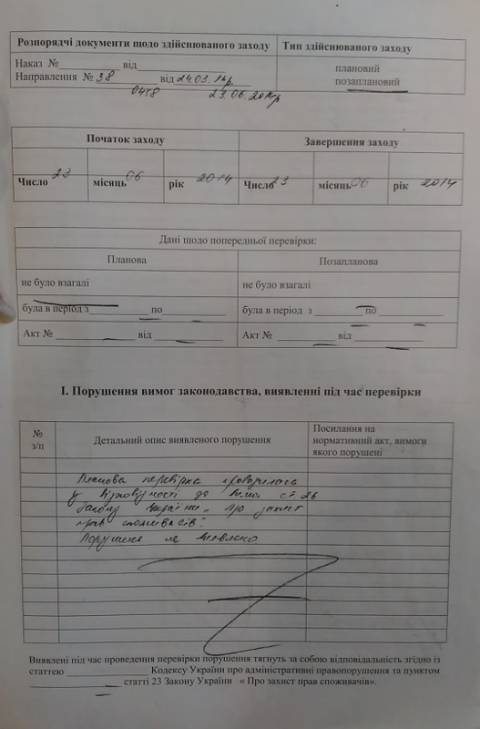 Розпорядчі документи щодо здійснюваного заходу Тип здійснюваного заходу
Наказ № від
Направлення № 38 від 24.03.14р
плановий
позаплановий
0418 23.06.2014р
Початок заходу Завершення заходу
Число 23 місяць 06 рік 2014 Число 23 місяць 06 рік 2014
Дані щодо попередньої перевірки:
Планова Позапланова
не було взагалі не було взагалі
була в період з по була в період з по
Акт № від Акт № від
І. Порушення вимог законодавства, виявленні під час перевірки
№
з/п
Детальний опис виявленого порушення
Посилання на
нормативний акт, вимоги
якого порушені
перевірка проводилась
у відповідності до вимог ст 26
Закону України „Про захист
прав споживачів".
Порушень не виявлено
Виявлені під час проведення перевірки порушення тягнуть за собою відповідальність згідно із
статтею Кодексу України про адміністративні правопорушення та пунктом
статті 23 Закону України « Про захист прав споживачів».